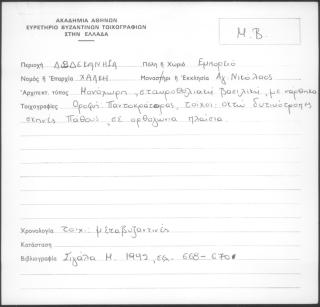 ΑΚΑΔΗΜΙΑ ΑΘΗΝΩΝ
ΕΥΡΕΤΗΡΙΟ ΒΥΖΑΝΤΙΝΩΝ ΤΟΙΧΟΓΡΑΦΙΩΝ
ΣΤΗΝ ΕΛΛΑΔΑ
Μ.Β.
Περιοχή ΔΩΔΕΚΑΝΗΣΑ Πόλη ή Χωριό Εμπορειό
Νομός ή Επαρχία ΧΑΛΚΗ Μοναστήρι ή Εκκλησία Άγ Νικόλαος
Αρχιτεκτ. τύπος Μονόχωρη, σταυροθολιακή βασιλική, με νάρθηκα
Τοιχογραφίες Οροφή: Παντοκράτορας, τοίχοι: οκτώ δυτικότροπες
σκηνές Πάθους, σε ορθογώνια πλαίσια.
Χρονολογία τοιχ: μεταβυζαντινές
Κατάσταση
Βιβλιογραφία Σιγάλα Μ. 1992, σσ. 668-670